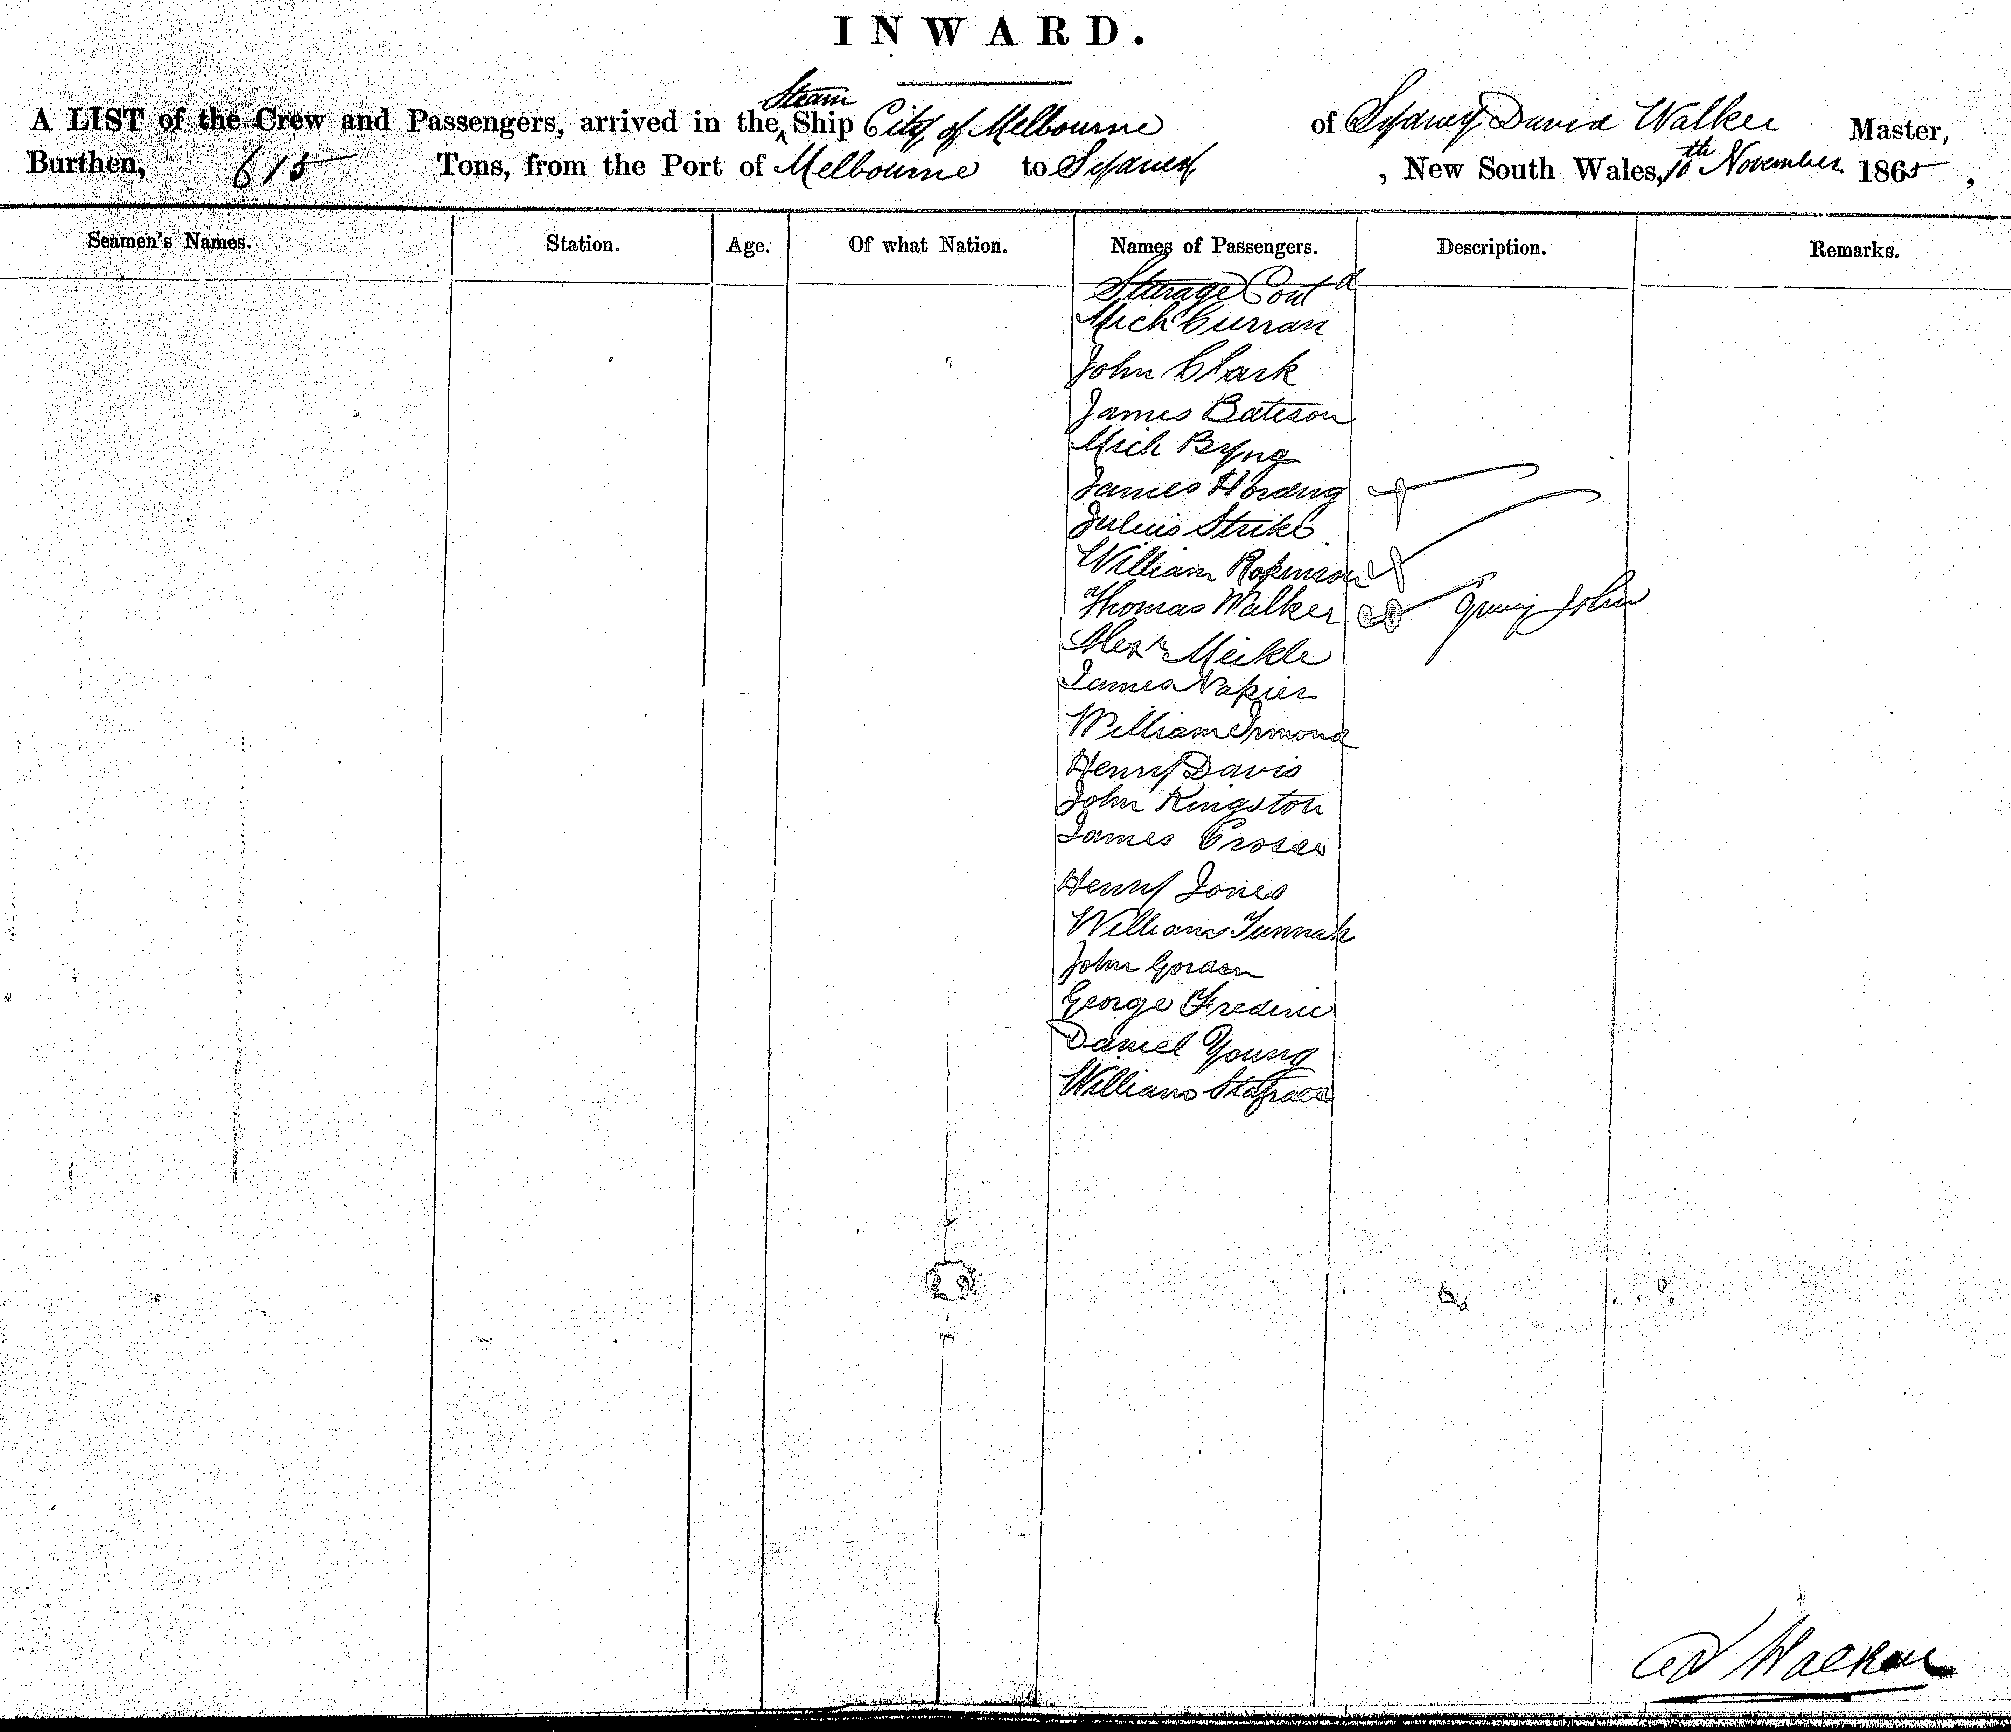 INWARD.
A LIST of the Crew and Passengers, arrived in the Steam Ship City of Melbourne of Sydney David Walker Master,
Burthen, 615 Tons, from the Port of Melbourne to Sydney, New South Wales, 10th November 1865,
Seamen's Names. Station. Age. Of what Nation. Names of Passengers. Description. Remarks.
Steerage Contd
Mich Curran
John Clark
James Bateson
Mich Byng
James
Julius Strike
William Robinson
Thomas Walker John
Alexr Meikle
James Napier
William Ormond
Henry Davis
John Kingston
James Crosse
Henry Jones
William Tunnah
John Gordon
George Frederic
Daniel Young
William
Walker